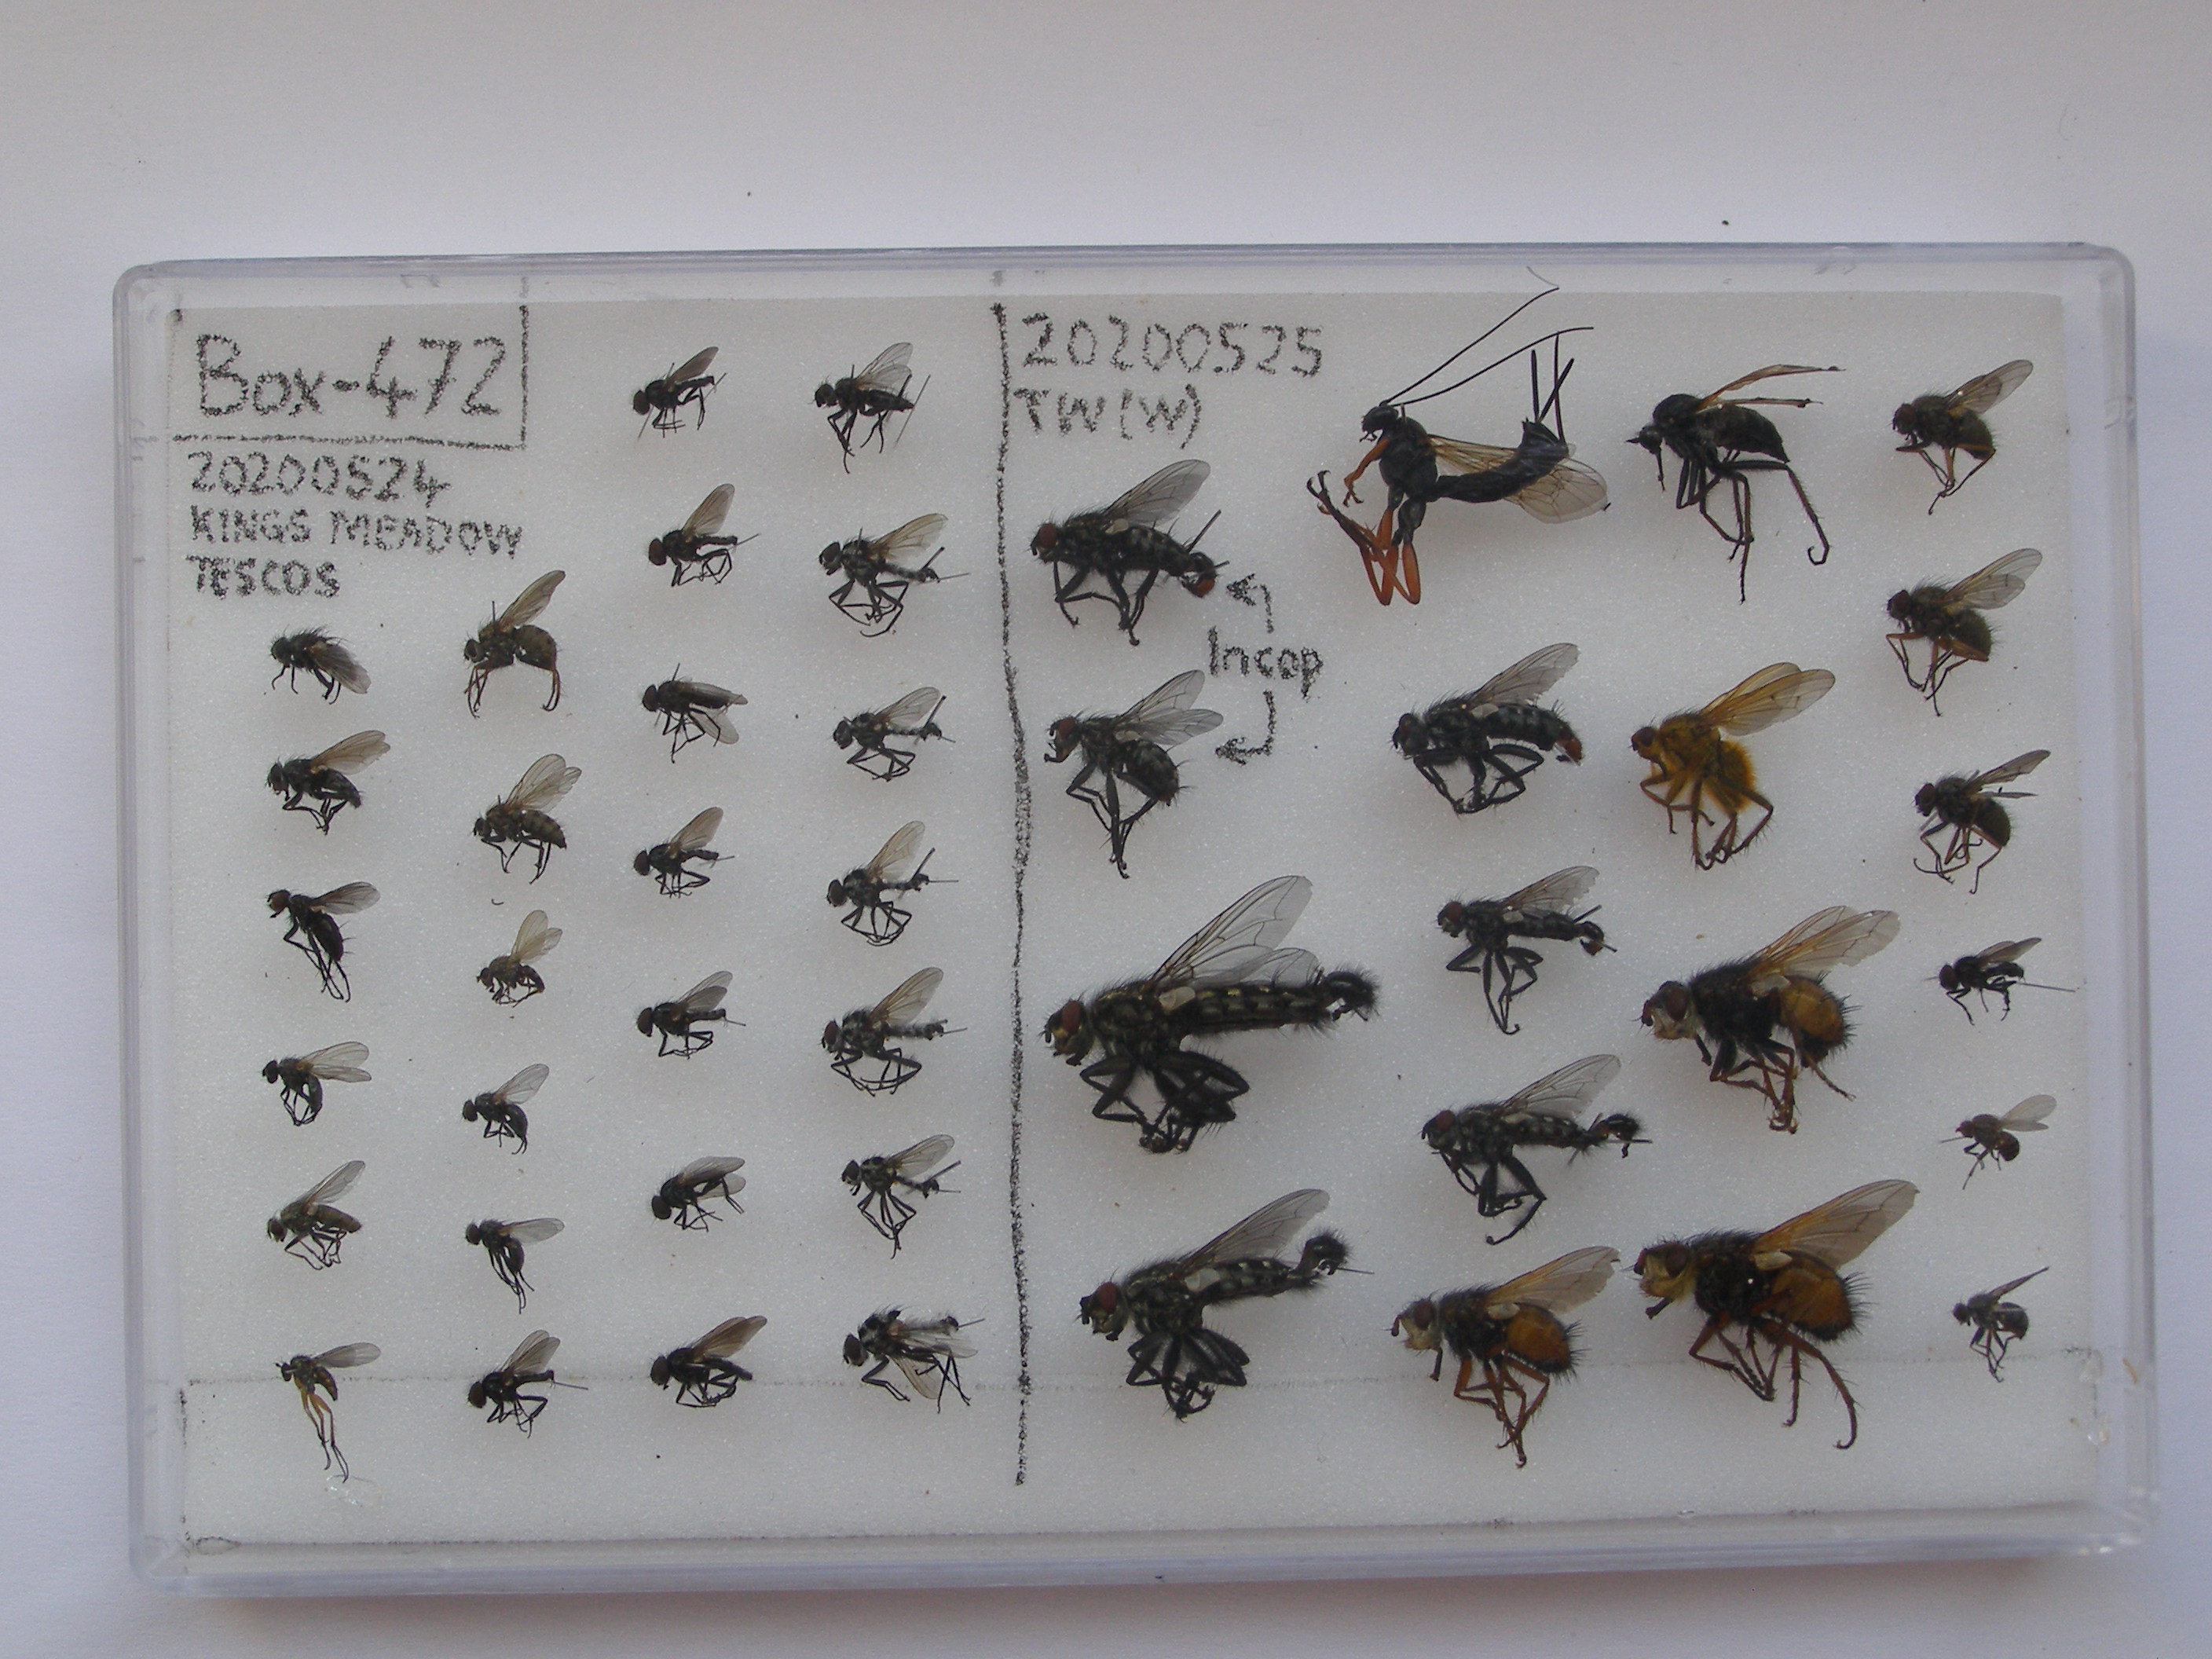 Box-472
20200524
KINGS MEADOW
TESCOS
20200525
TW(W)
Incop